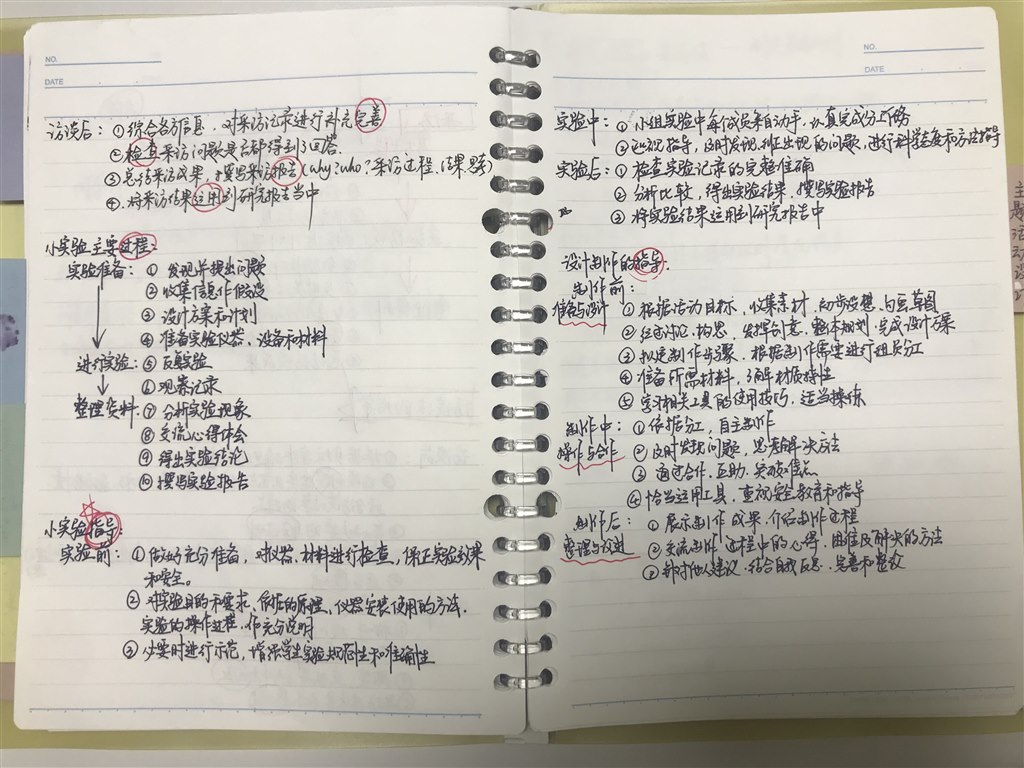 NO.
DATE
访谈后：①综合各方信息，对采访记录进行补充完善
②检查采访问题是否都得到了回答
③总结采访成果，撰写采访报告(why?who?采访过程、结果、思)
④将采访结果运用到研究报告当中
小实验主要过程：
实验准备：①发现并提出问题
②收集信息作假设
③设计方案和计划
④准备实验仪器，设备和材料
进行实验：⑤反复实验
⑥观察记录
整理资料：⑦分析实验现象
⑧交流心得体会
⑨得出实验结论
⑩撰写实验报告
小实验指导：
实验前：①做好充分准备，对仪器，材料进行检查，保证实验效果
和安全。
②对实验目的和要求、依据的原理、仪器安装使用的方法、
实验的操作过程，作充分说明
③必要时进行示范，增强学生实验规范性和准确性
NO.
DATE
实验中：①小组实验中每成员亲自动手，认真完成分工任务
②巡视指导，及时发现、纠正出现的问题，进行科学态度和方法指导
实验后：①检查实验记录的完整准确
②分析比较，得出实验结果，撰写实验报告
③将实验结果运用到研究报告中
设计制作的指导：
制作前：
准备与设计 ①根据活动目标，收集素材，初步设想，勾画草图
②经过讨论、构思，发挥创意，整体规划，完成设计方案
③拟定制作步骤，根据制作需要进行组员分工
④准备所需材料，了解材质特性
⑤学习相关工具的使用技巧，适当操练
制作中：①依据分工，自主制作
操作与合作 ②及时发现问题，思考解决方法
③通过合作、互助、突破难点
④恰当运用工具，重视安全教育和指导
制作后：①展示制作成果，介绍制作过程
整理与改进 ②交流制作过程中的心得，困难及解决的方法
③听取他人建议，结合自我反思，完善和整改
主题活动